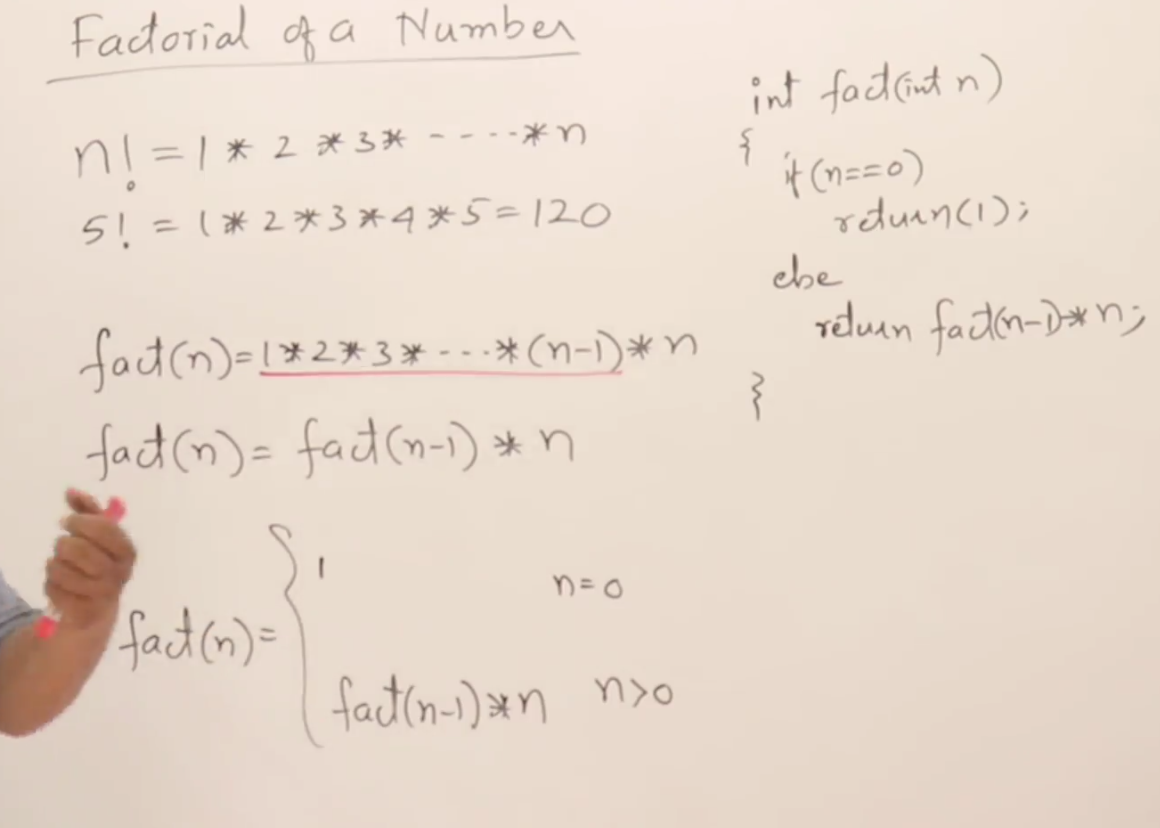 Factorial of a Number
n! = 1 * 2 * 3 * - - - - * n
5! = 1 * 2 * 3 * 4 * 5 = 120
fact(n) = 1 * 2 * 3 * - - - * (n-1) * n
fact(n) = fact(n-1) * n
fact(n) = {
1 n=0
fact(n-1) * n n>0
int fact(int n)
{
if (n==0)
return(1);
else
return fact(n-1) * n;
}